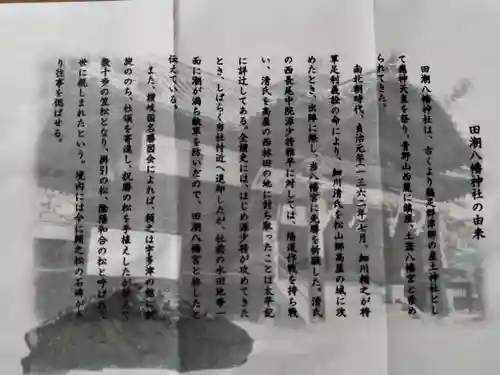 田潮八幡神社の由来
田潮八幡神社は、古くより鵜足郡津郷の産土神社とし
て應神天皇を祭り、青野山西麓に鎮座、土器八幡宮と崇め
られてきた。
南北朝時代、貞治元年(一三六二)年七月、細川頼之が将
軍足利義詮の命により、細川清氏を松山郷高屋の城に攻
めたとき、出陣に際し、当八幡宮に先勝を祈願した。清氏
の西長尾中院源少将雅平に対しては、陽道作戦を持ち戦
い、清氏を高屋の西林田の地に討ち取ったことは太平記
に詳辻してある。全讃史には、はじめ源少将が攻めてきた
とき、しばらく当社付近へ退却したが、社前の水田地帯一
面に潮が満ち敵軍を防いだので、田潮八幡宮と称したと
伝えている。
また、讃岐国名勝図会によれば、頼之は宇多津の館に
ののち、社領を寄進し、祝勝の松を手植えしたが
数十歩の笠松となり、綱引の松、陰陽和合の松と呼ばれ
世に親しまれたという。境内には今に頼之松の石碑が
り往事を偲ばせる。